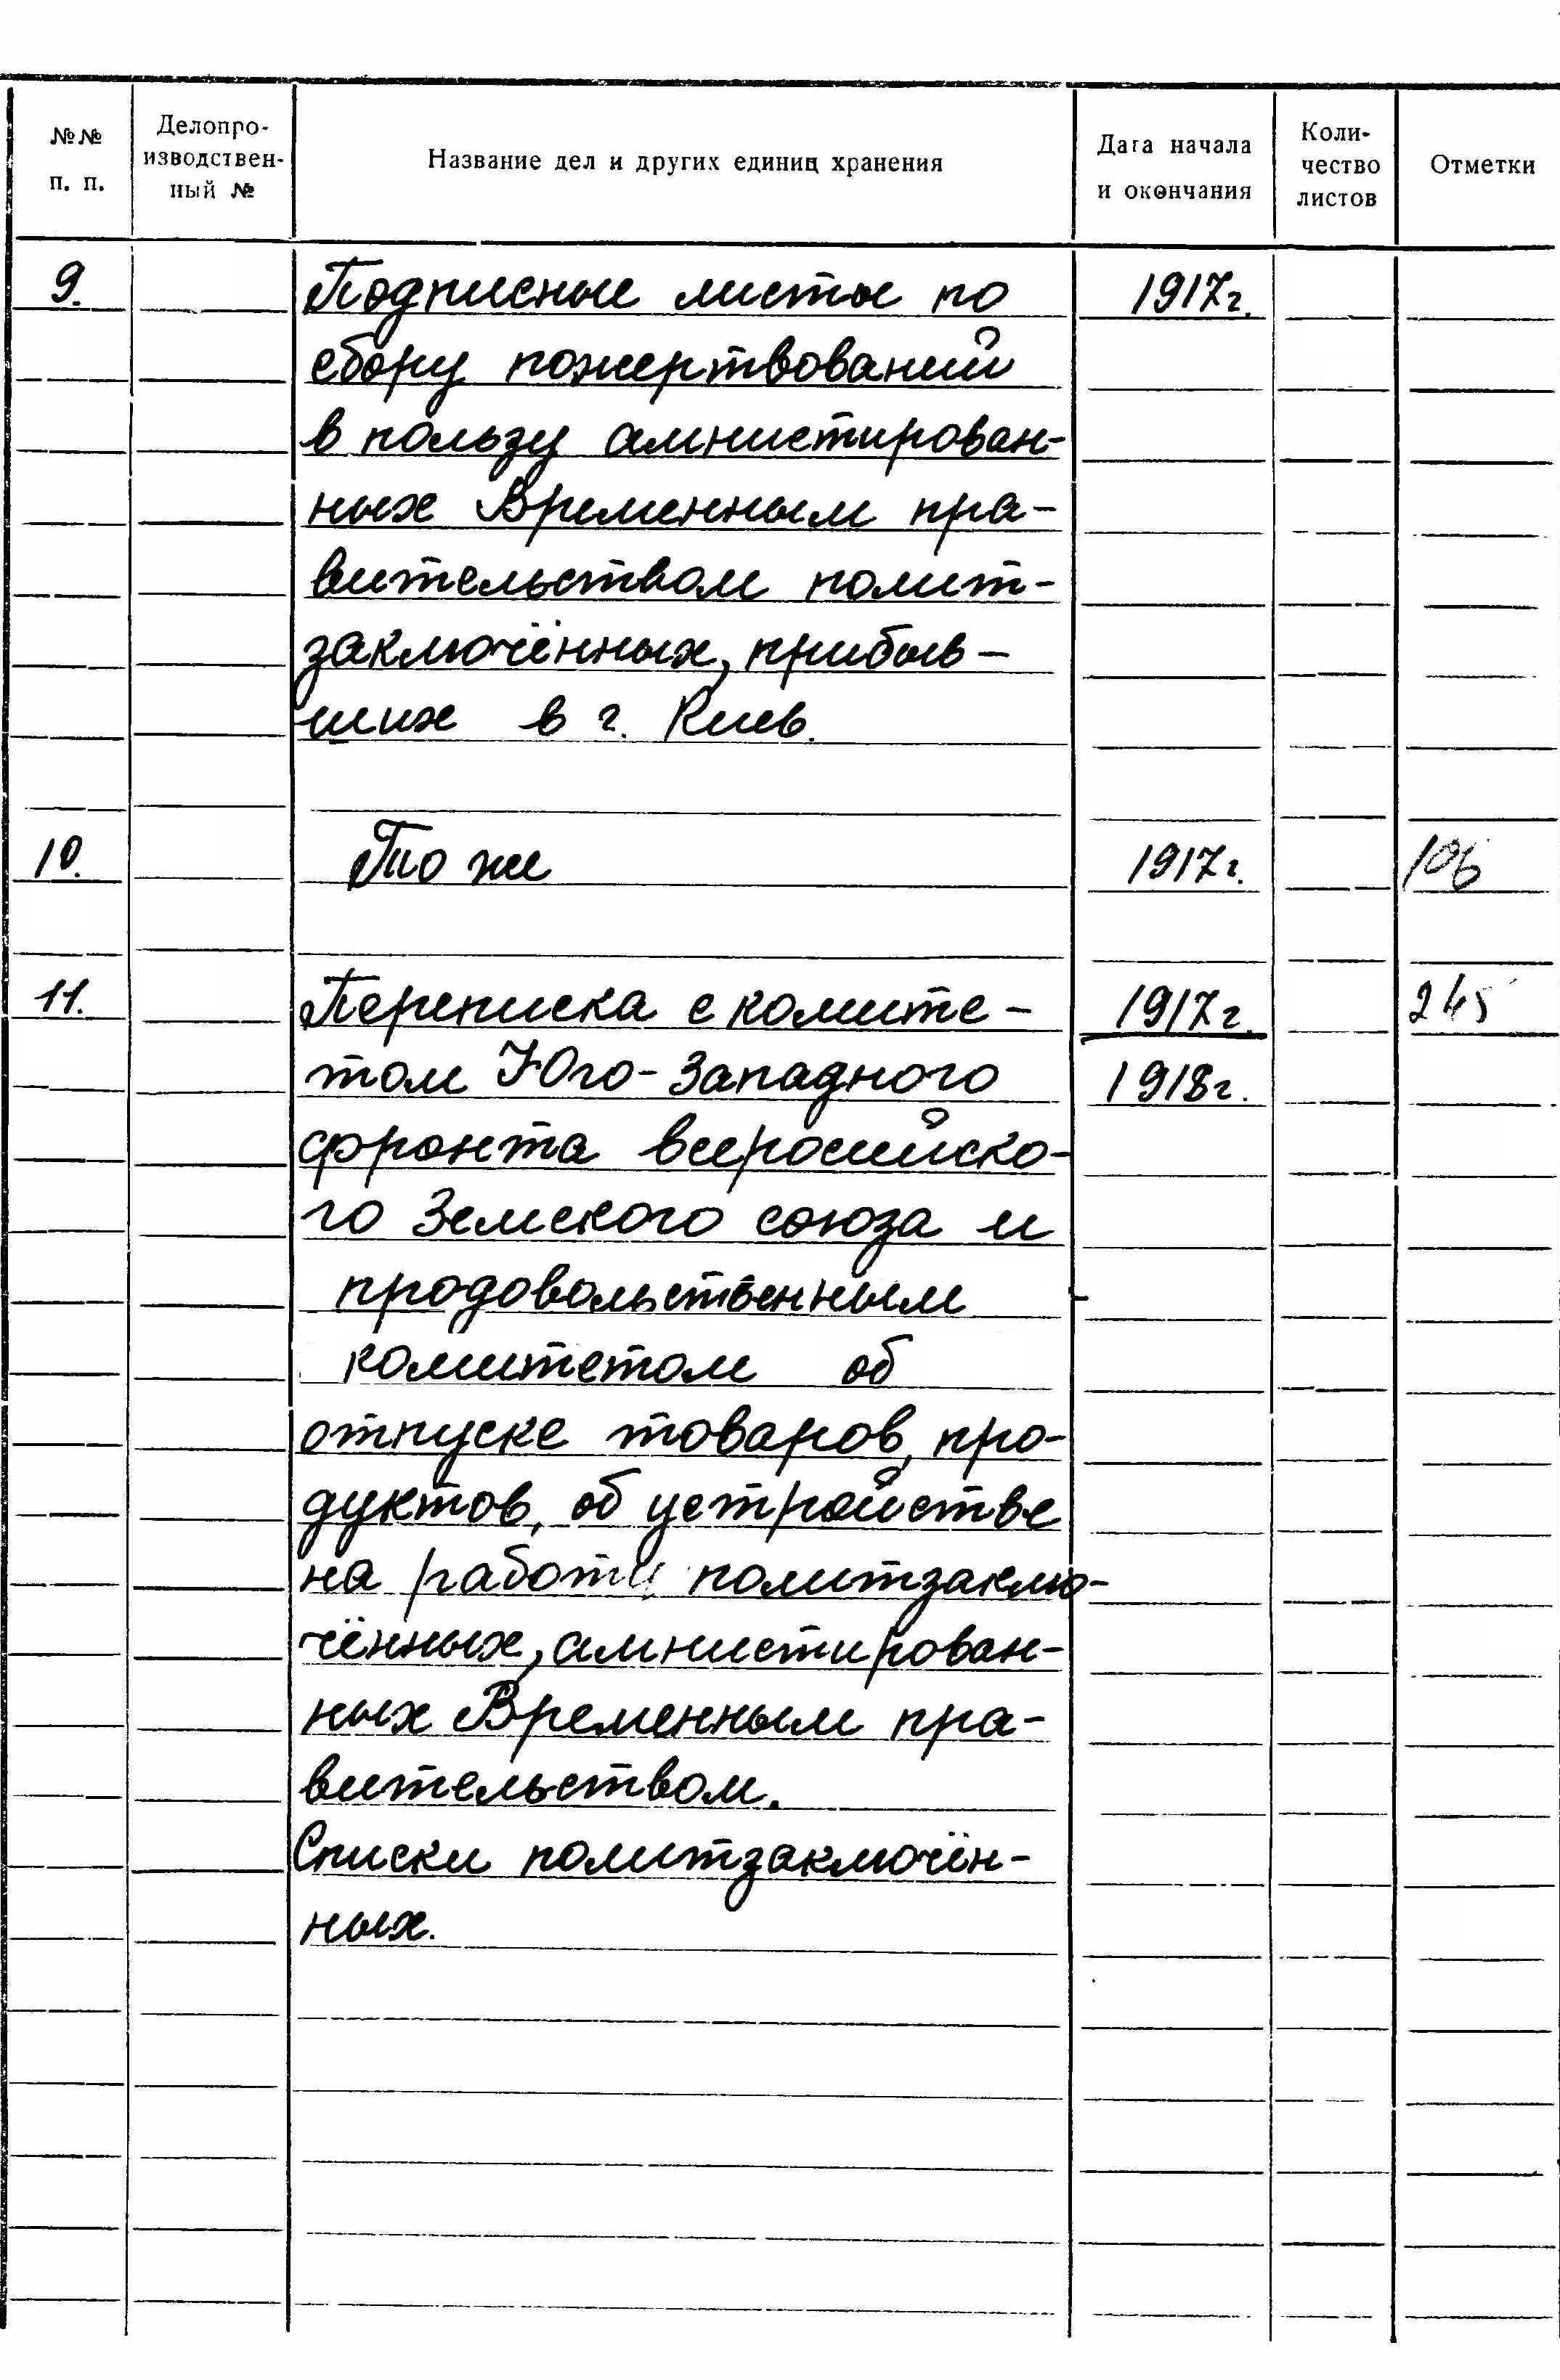 №№ п. п.
Делопро-
изводствен-
ный №
Название дел и других единиц хранения
Дата начала
и окончания
Коли-
чество
листов
Отметки
9. Подписные листы по 1917г.
сбору пожертвований
в пользу амнистирован-
ных Временным пра-
вительством полит-
заключённых, прибыв-
ших в г. Киев.
10. То же 1917г. 106
11. Переписка с комите- 1917г. 245
том Юго-Западного 1918г.
фронта всеросийско-
го Земского союза и
продовольственным
комитетом об
отпуске товаров, про-
дуктов, об устройстве
на работу политзаклю-
чённых, амнистирован-
ных Временным пра-
вительством.
Списки политзаключён-
ных.